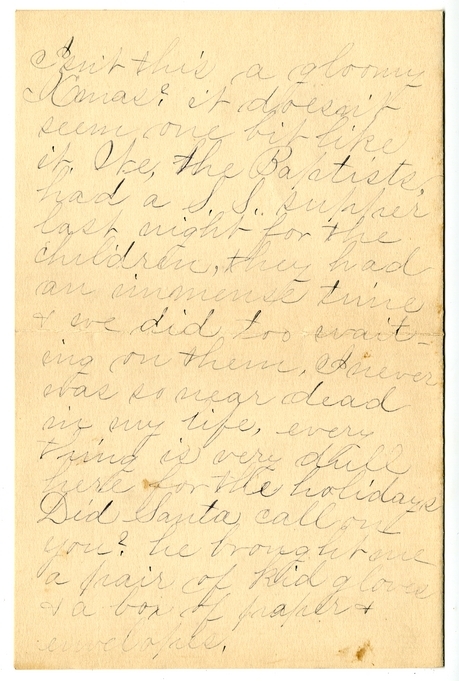 Isn't this a gloomy
Xmas? it doesn't
seem one bit like
it. We, the Baptists,
had a S. S. supper
last night for the
children, they had
an immense time
& we did too wait-
ing on them, I never
was so near dead
in my life, every
thing is very dull
here for the holidays
Did Santa call on
you? he brought me
a pair of Kid gloves
& a box of paper &
envelopes.